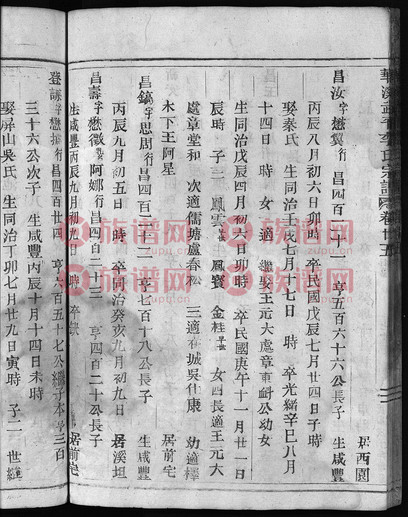 華溪 李氏宗譜 卷廿五
昌汝字懋冀行昌四百二十 亨五百六十六公長子 生咸豐
丙辰八月初六日卯時 卒民國戊辰七月廿四日子時 居西園
娶秦氏 生同治壬戌七月十七日 時 卒光緒辛巳八月
十四日 時 女一適 繼娶王元大處章東 公幼女
生同治戊辰四月初六日卯時 卒民國庚午十一月廿一日
時 子二 鳳雲 鳳寶 金桂 女四長適王元大
處章堂和 次適儒塘處春松 三適 城吳作康 幼適釋
木下王阿星 居前宅
昌鎬字思周行昌四百二十一 亨七百十八公長子 生咸豐
丙辰九月初五日 時 卒同治癸亥九月初九日 居溪坦
昌壽字懋微 阿娜行昌四百二十三 亨四百二十公長子
生咸豐丙辰九月初九日 時 卒 居前宅
登謙字懋 行昌四百廿四 亨六百五十七公繼子本亨三百
三十六公次子 生咸豐丙辰十月十四日未時
娶屏山吳氏 生同治丁卯七月廿九日寅時 子二 世繼
族谱网